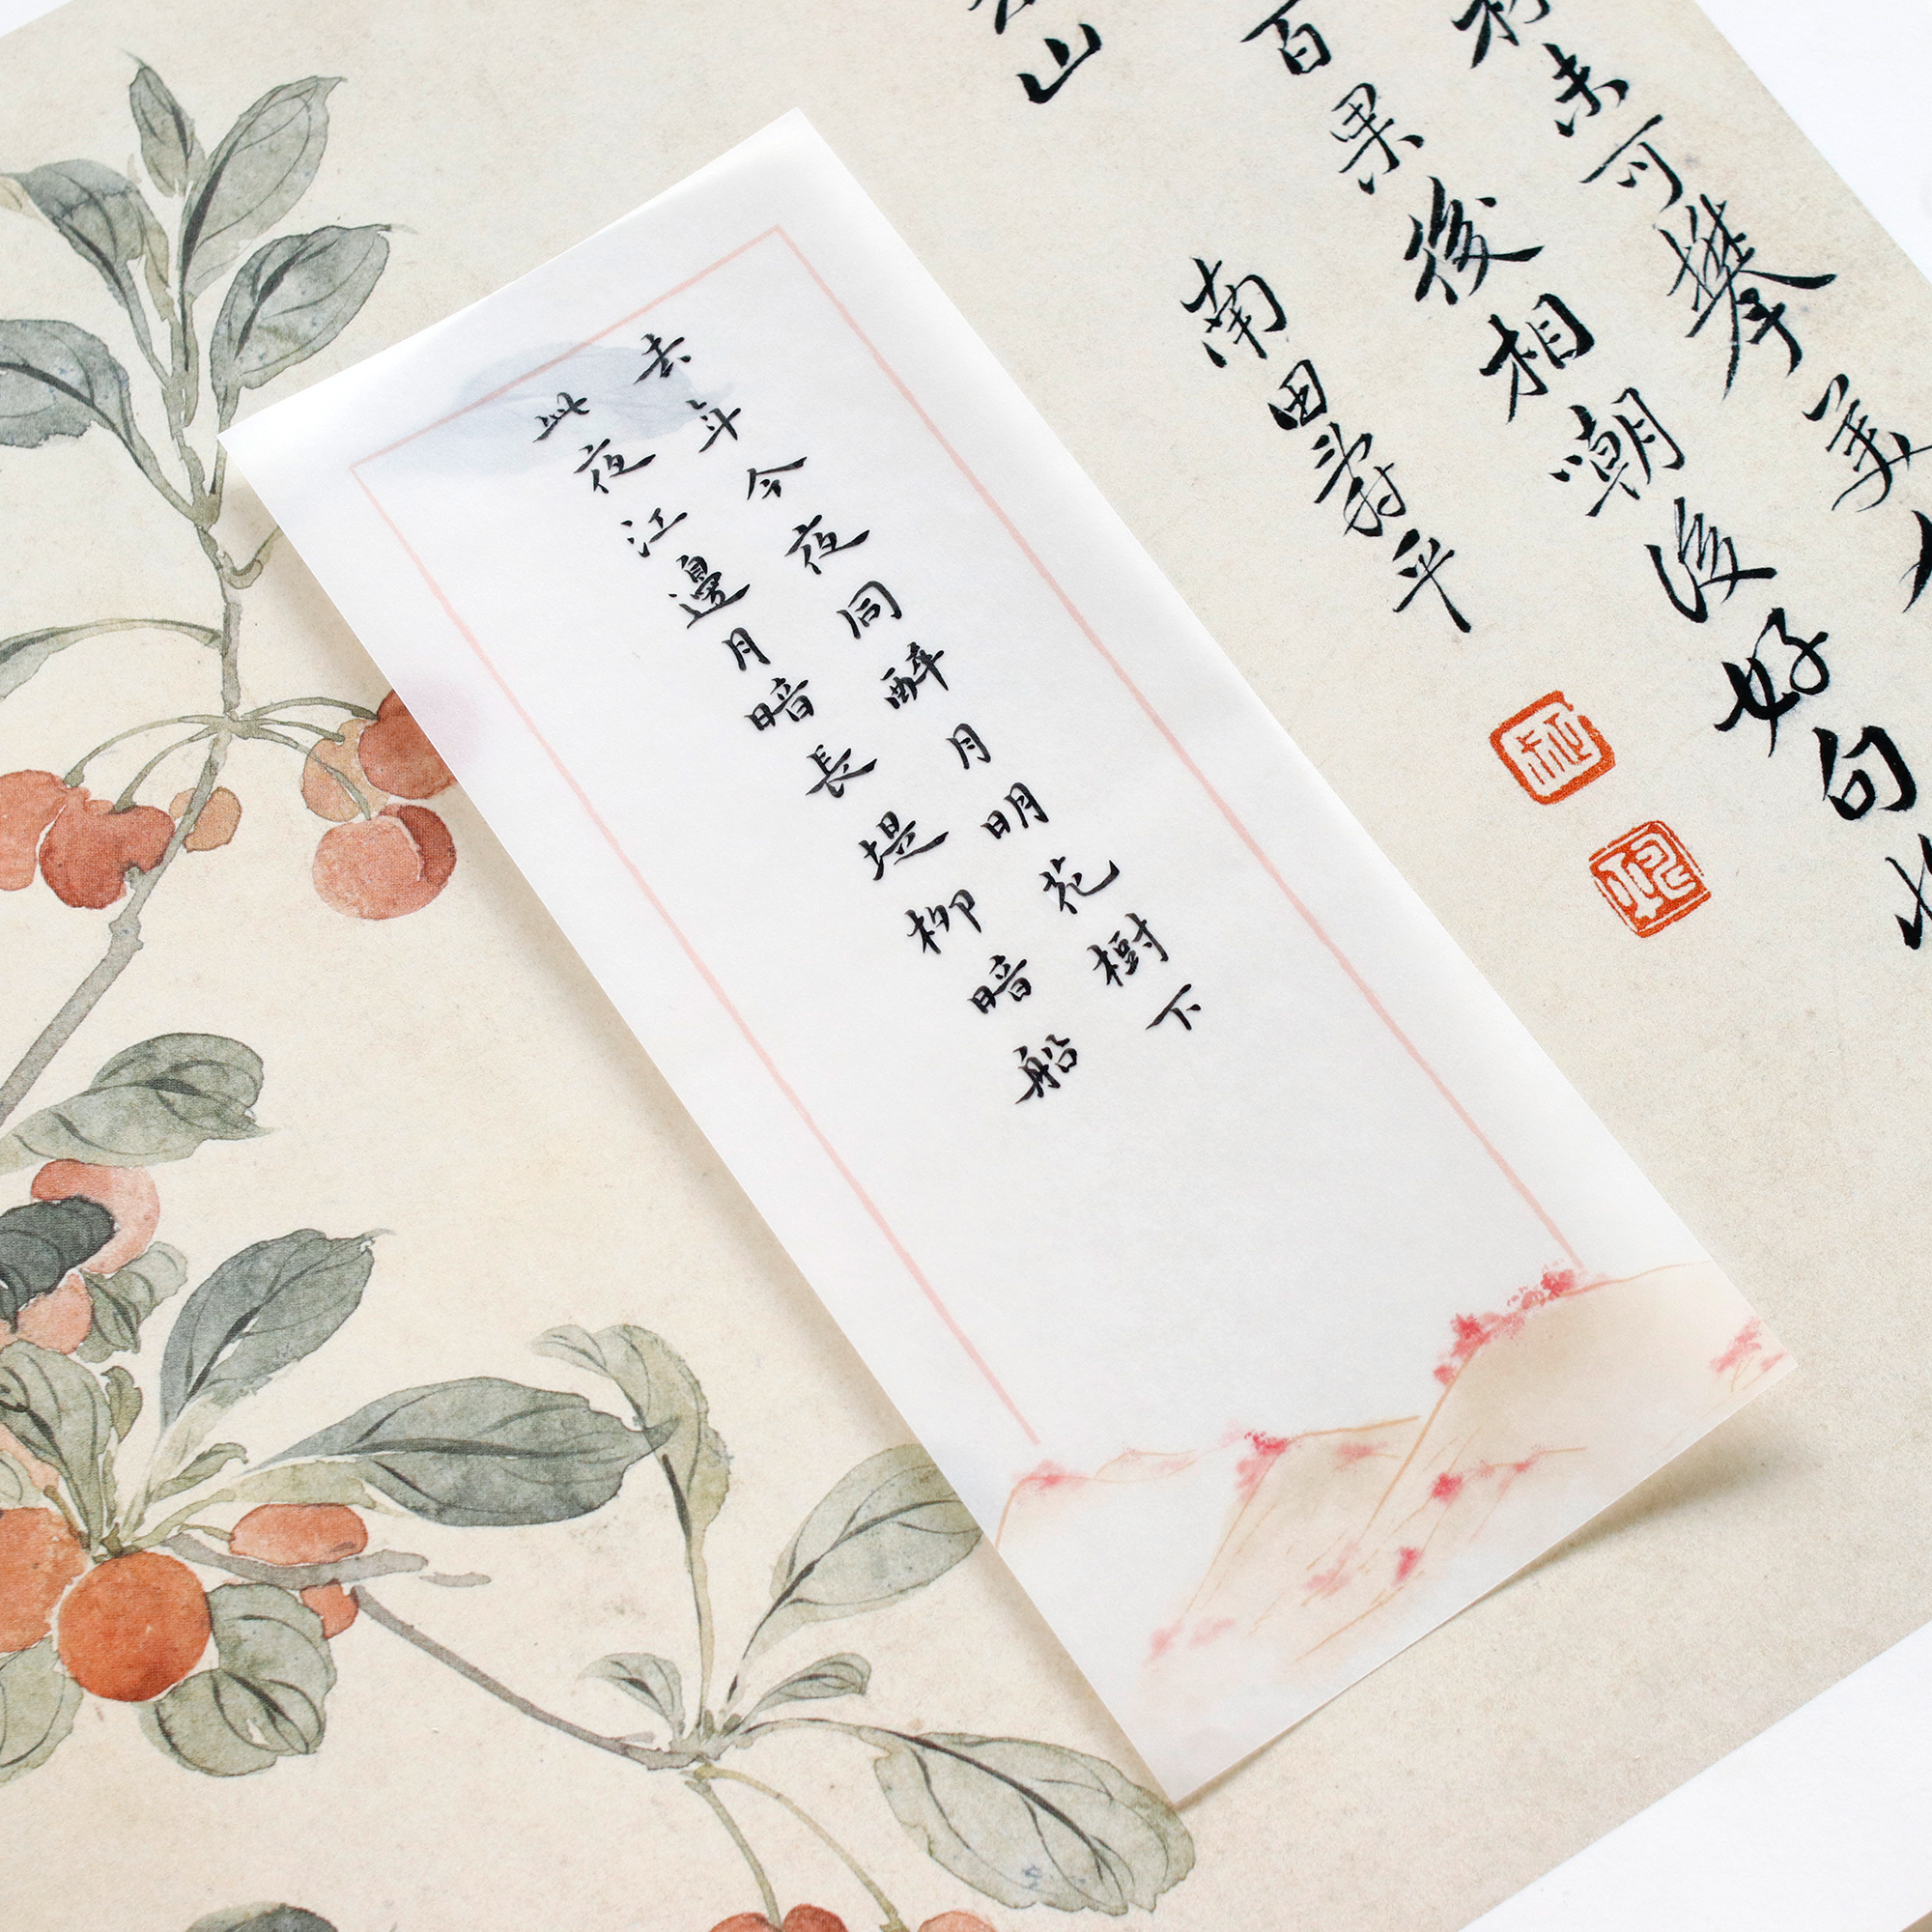 去年今夜同醉月明花樹下
此夜江邊月暗長堤柳暗船
未可攀美
百果後相嘲後好句
山
南田壽平